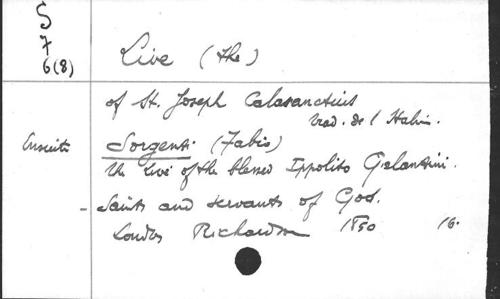 S
7
6(8)
Live (the)
of St. Joseph Calasanctius
trad. de l'Italien.
Ensuite
Sorgenti (Fabio)
the live of the blessed Ippolito Galantini.
- Saints and servants of God.
London Richardson 1850 16.